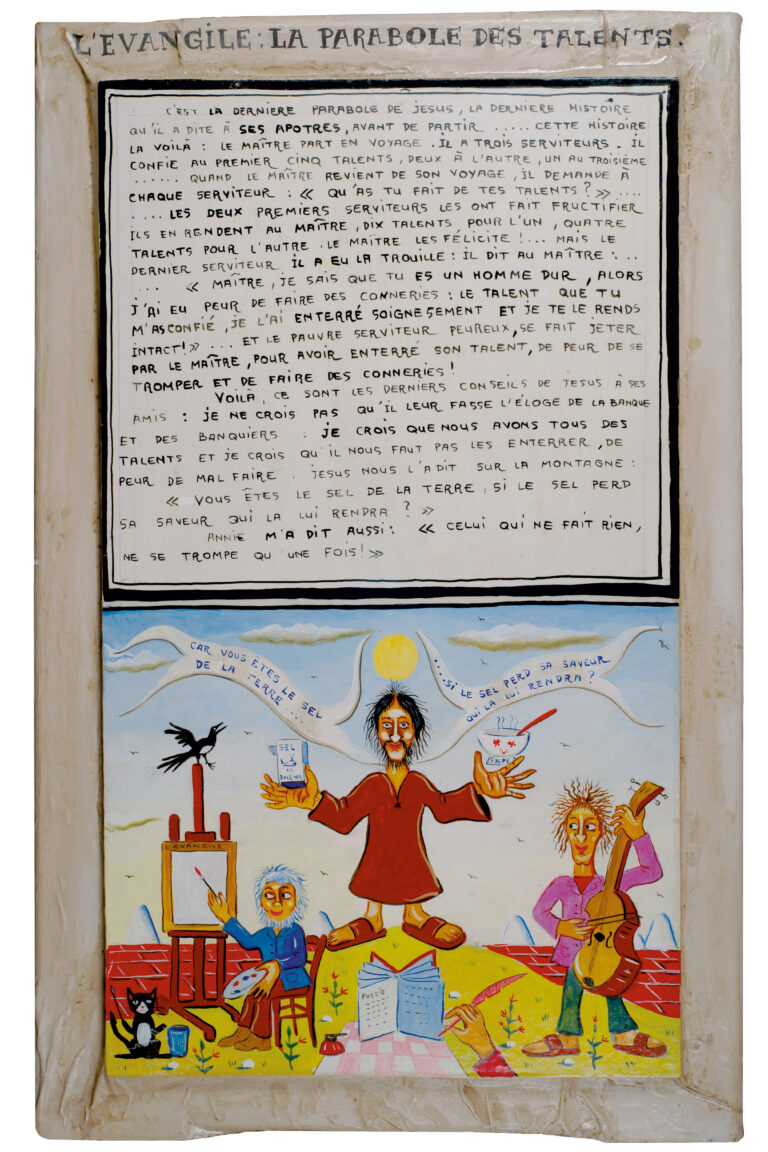 L'EVANGILE : LA PARABOLE DES TALENTS.
C'EST LA DERNIERE PARABOLE DE JESUS, LA DERNIERE HISTOIRE
QU'IL A DITE À SES APOTRES, AVANT DE PARTIR ..... CETTE HISTOIRE
LA VOILÀ : LE MAÎTRE PART EN VOYAGE . IL A TROIS SERVITEURS . IL
CONFIE AU PREMIER CINQ TALENTS, DEUX À L'AUTRE, UN AU TROISIÈME
...... QUAND LE MAÎTRE REVIENT DE SON VOYAGE, IL DEMANDE À
CHAQUE SERVITEUR : « QU'AS TU FAIT DE TES TALENTS ? » ....
.... LES DEUX PREMIERS SERVITEURS LES ONT FAIT FRUCTIFIER
ILS EN RENDENT AU MAÎTRE, DIX TALENTS POUR L'UN, QUATRE
TALENTS POUR L'AUTRE . LE MAÎTRE LES FÉLICITE !... MAIS LE
DERNIER SERVITEUR IL A EU LA TROUILLE : IL DIT AU MAÎTRE : ..
... « MAÎTRE, JE SAIS QUE TU ES UN HOMME DUR, ALORS
J'AI EU PEUR DE FAIRE DES CONNERIES : LE TALENT QUE TU
M'AS CONFIÉ, JE L'AI ENTERRÉ SOIGNESEMENT ET JE TE LE RENDS
INTACT! » ... ET LE PAUVRE SERVITEUR PEUREUX, SE FAIT JETER
PAR LE MAÎTRE, POUR AVOIR ENTERRÉ SON TALENT, DE PEUR DE SE
TROMPER ET DE FAIRE DES CONNERIES !
VOILÀ, CE SONT LES DERNIERS CONSEILS DE JESUS À SES
AMIS : JE NE CROIS PAS QU'IL LEUR FASSE L'ÉLOGE DE LA BANQUE
ET DES BANQUIERS : JE CROIS QUE NOUS AVONS TOUS DES
TALENTS ET JE CROIS QU'IL NOUS FAUT PAS LES ENTERRER, DE
PEUR DE MAL FAIRE . JESUS NOUS L'A DIT SUR LA MONTAGNE :
« VOUS ÊTES LE SEL DE LA TERRE, SI LE SEL PERD
SA SAVEUR QUI LA LUI RENDRA ? »
ANNIE M'A DIT AUSSI : « CELUI QUI NE FAIT RIEN,
NE SE TROMPE QU'UNE FOIS ! »
CAR VOUS ETES LE SEL
DE LA TERRE....
...SI LE SEL PERD SA SAVEUR
QUI LA LUI RENDRA ?
SEL
LA
BALEINE
SOUPE
L'EVANGILE
POESIE